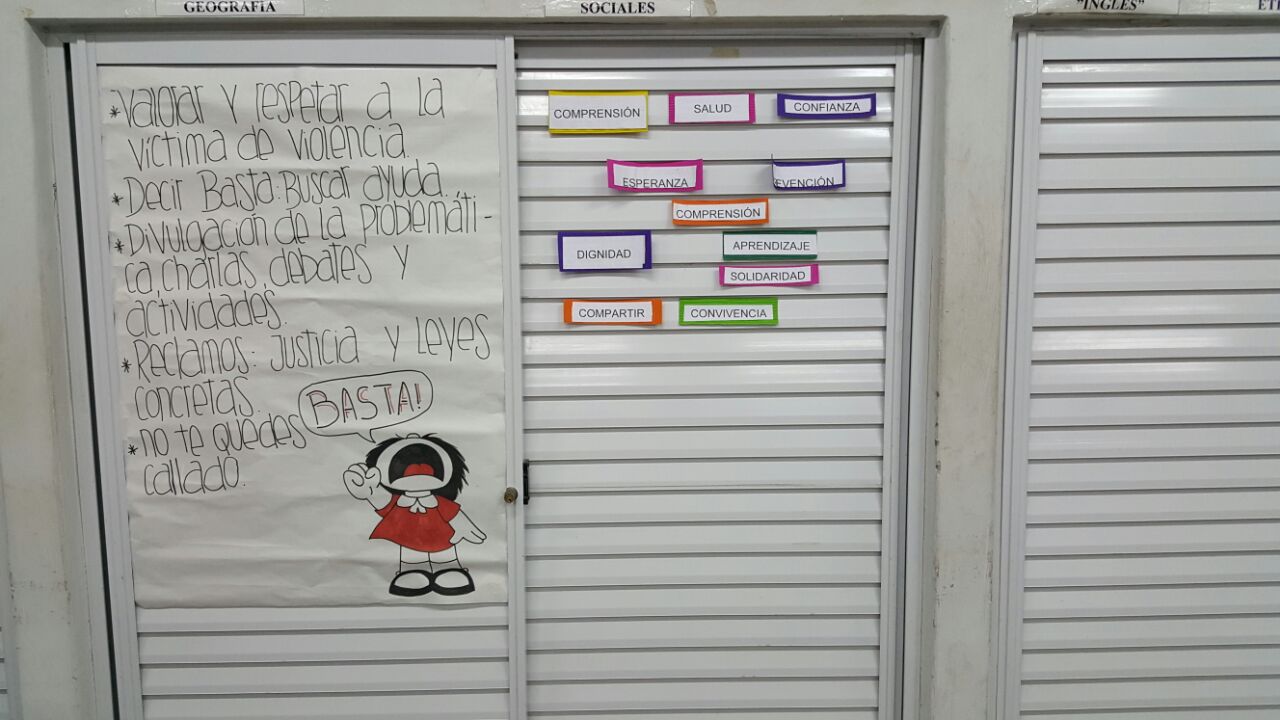 GEOGRAFÍA
SOCIALES
"INGLES"
*Valorar y respetar a la
víctima de violencia.
*Decir Basta: Buscar ayuda.
*Divulgación de la problemáti-
ca, charlas, debates y
actividades.
*Reclamos: Justicia y Leyes
concretas.
*no te quedes
callado.
BASTA!
COMPRENSIÓN
SALUD
CONFIANZA
ESPERANZA
EVENCIÓN
COMPRENSIÓN
DIGNIDAD
APRENDIZAJE
SOLIDARIDAD
COMPARTIR
CONVIVENCIA